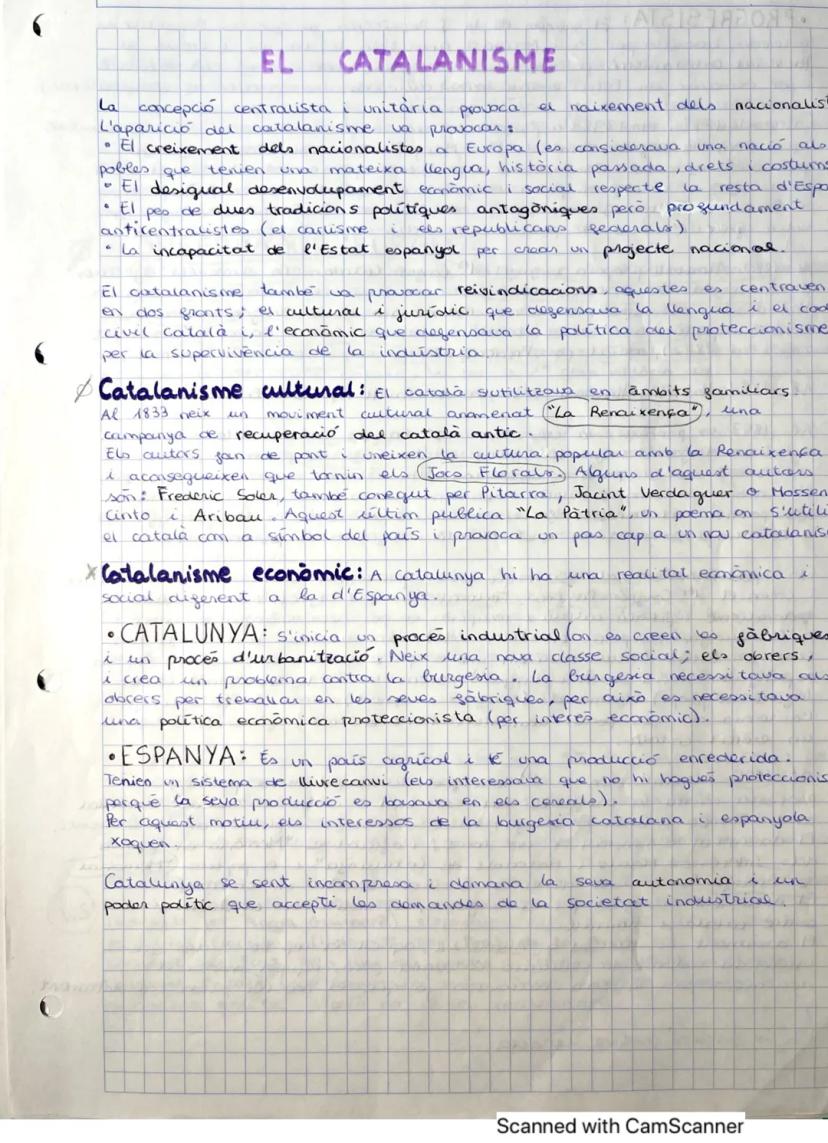 EL CATALANISME
La concepció centralista i unitària provoca el naixement dels nacionalis
L'aparició del catalanisme va provocar:
• El creixement dels nacionalistes a Europa (es considerava una nació als
pobles que tenien una mateixa llengua, història passada, drets i costums
• El desigual desenvolupament econòmic i social respecte la resta d'Espa
• El pes de dues tradicions polítiques antagòniques però profundament
anticentralistes (el carlisme i els republicans federals)
• La incapacitat de l'Estat espanyol per crear un projecte nacional.
El catalanisme també va provocar reivindicacions, aquestes es centraven
en dos fronts; el cultural i jurídic que defensava la llengua i el codi
civil català i, l'econòmic que defensava la política del proteccionisme
per la supervivència de la indústria.
Catalanisme cultural: El català s'utilitzava en àmbits familiars.
Al 1833 neix un moviment cultural anomenat "La Renaixença", una
campanya de recuperació del català antic.
Els autors fan de pont i uneixen la cultura popular amb la Renaixença
i aconsegueixen que tornin els Jocs Florals. Alguns d'aquest autors
són: Frederic Soler, també conegut per Pitarra, Jacint Verdaguer o Mossen
Cinto i Aribau. Aquest últim publica "La Pàtria", un poema on s'utili
el català com a símbol del país i provoca un pas cap a un nou catalanis
x Catalanisme econòmic: A Catalunya hi ha una realitat econòmica i
social diferent a la d'Espanya.
• CATALUNYA: S'inicia un procés industrial (on es creen les fàbriques
i un procés d'urbanització. Neix una nova classe social; els obrers,
i crea un problema contra la burgesia. La burgesia necessitava als
obrers per treballar en les seves fàbriques, per això es necessitava
una política econòmica proteccionista (per interès econòmic).
• ESPANYA: És un país agrícol i té una producció enrederida.
Tenien un sistema de lliurecanvi (els interessava que no hi hagués proteccionis
perquè la seva producció es basava en els cereals).
Per aquest motiu, els interessos de la burgesia catalana i espanyola
xoquen.
Catalunya se sent incompresa i demana la seva autonomia i un
poder polític que accepti les demandes de la societat industrial.
Scanned with CamScanner